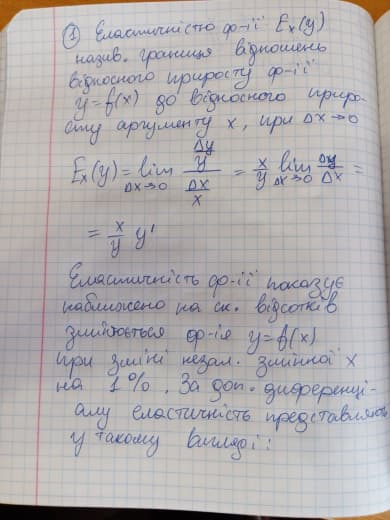 ① Еластичністю ф-ії Eₓ(y)
назив. границя відношень
відносного приросту ф-ії
y=f(x) до відносного приро-
сту аргументу x, при Δx→0
Eₓ(y) = lim_{Δx→0} (Δy/y)/(Δx/x) = x/y lim_{Δx→0} Δy/Δx =
= x/y y'
Еластичність ф-ії показує
наближено на ск. відсотків
змінюється ф-ія y=f(x)
при зміні незал. змінної x
на 1%. За доп. диференці-
алу еластичність представляють
у такому вигляді: